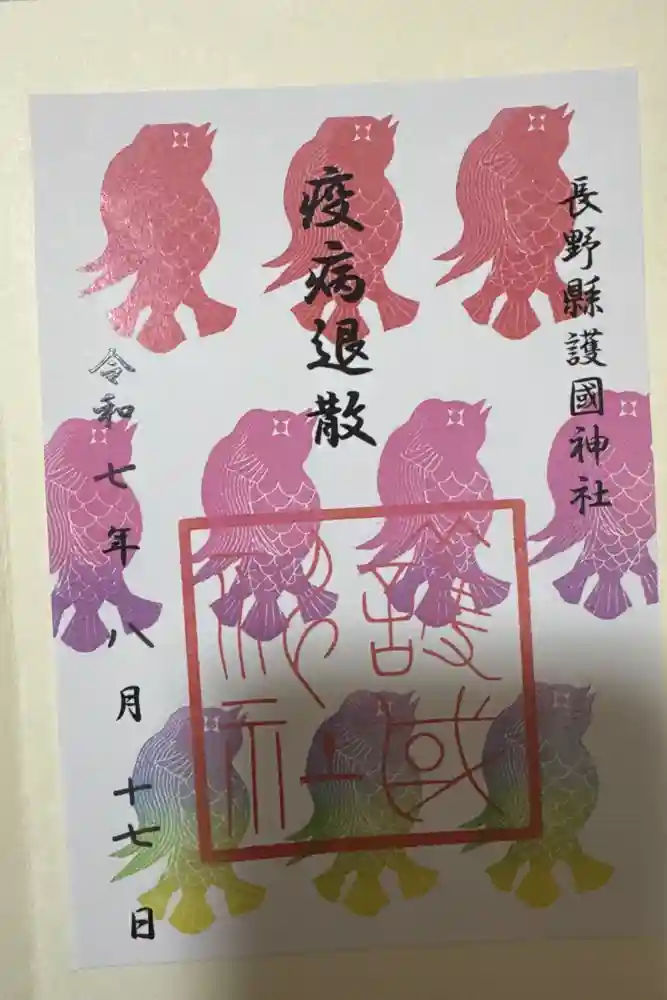 長野縣護國神社
疫病退散
令和七年八月十七日
護國神社